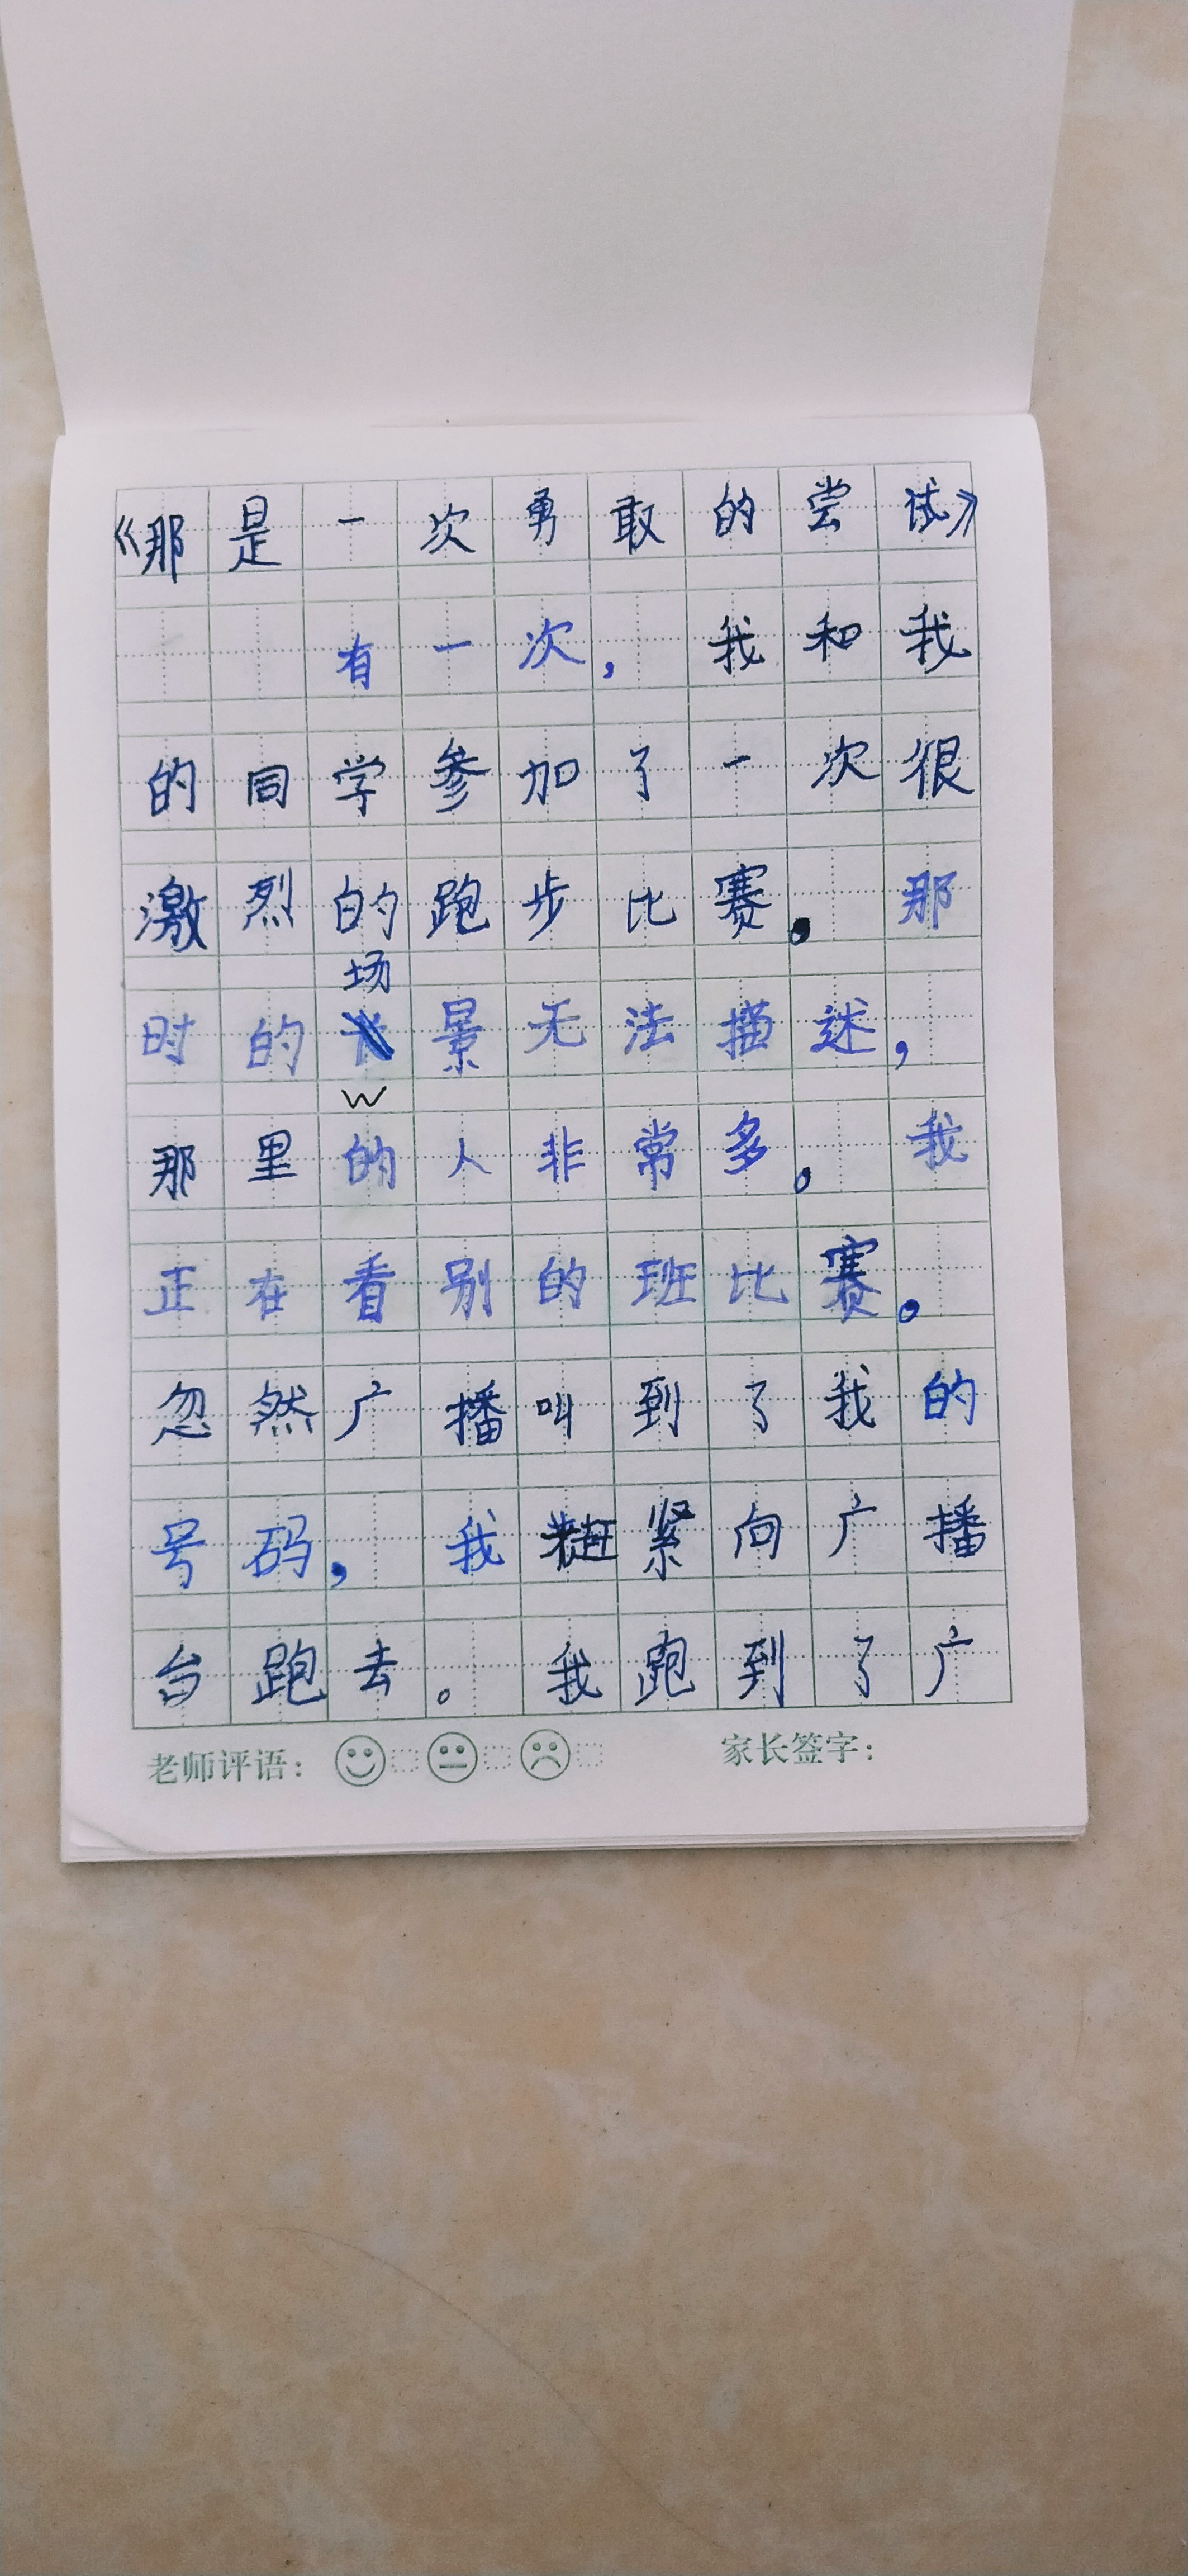 《那是一次勇敢的尝试》
有一次，我和我
的同学参加了一次很
激烈的跑步比赛。那
场
时的景无法描述，
那里的人非常多。我
正在看别的班比赛。
忽然广播叫到了我的
号码，我赶紧向广播
台跑去。我跑到了广
老师评语：
家长签字：